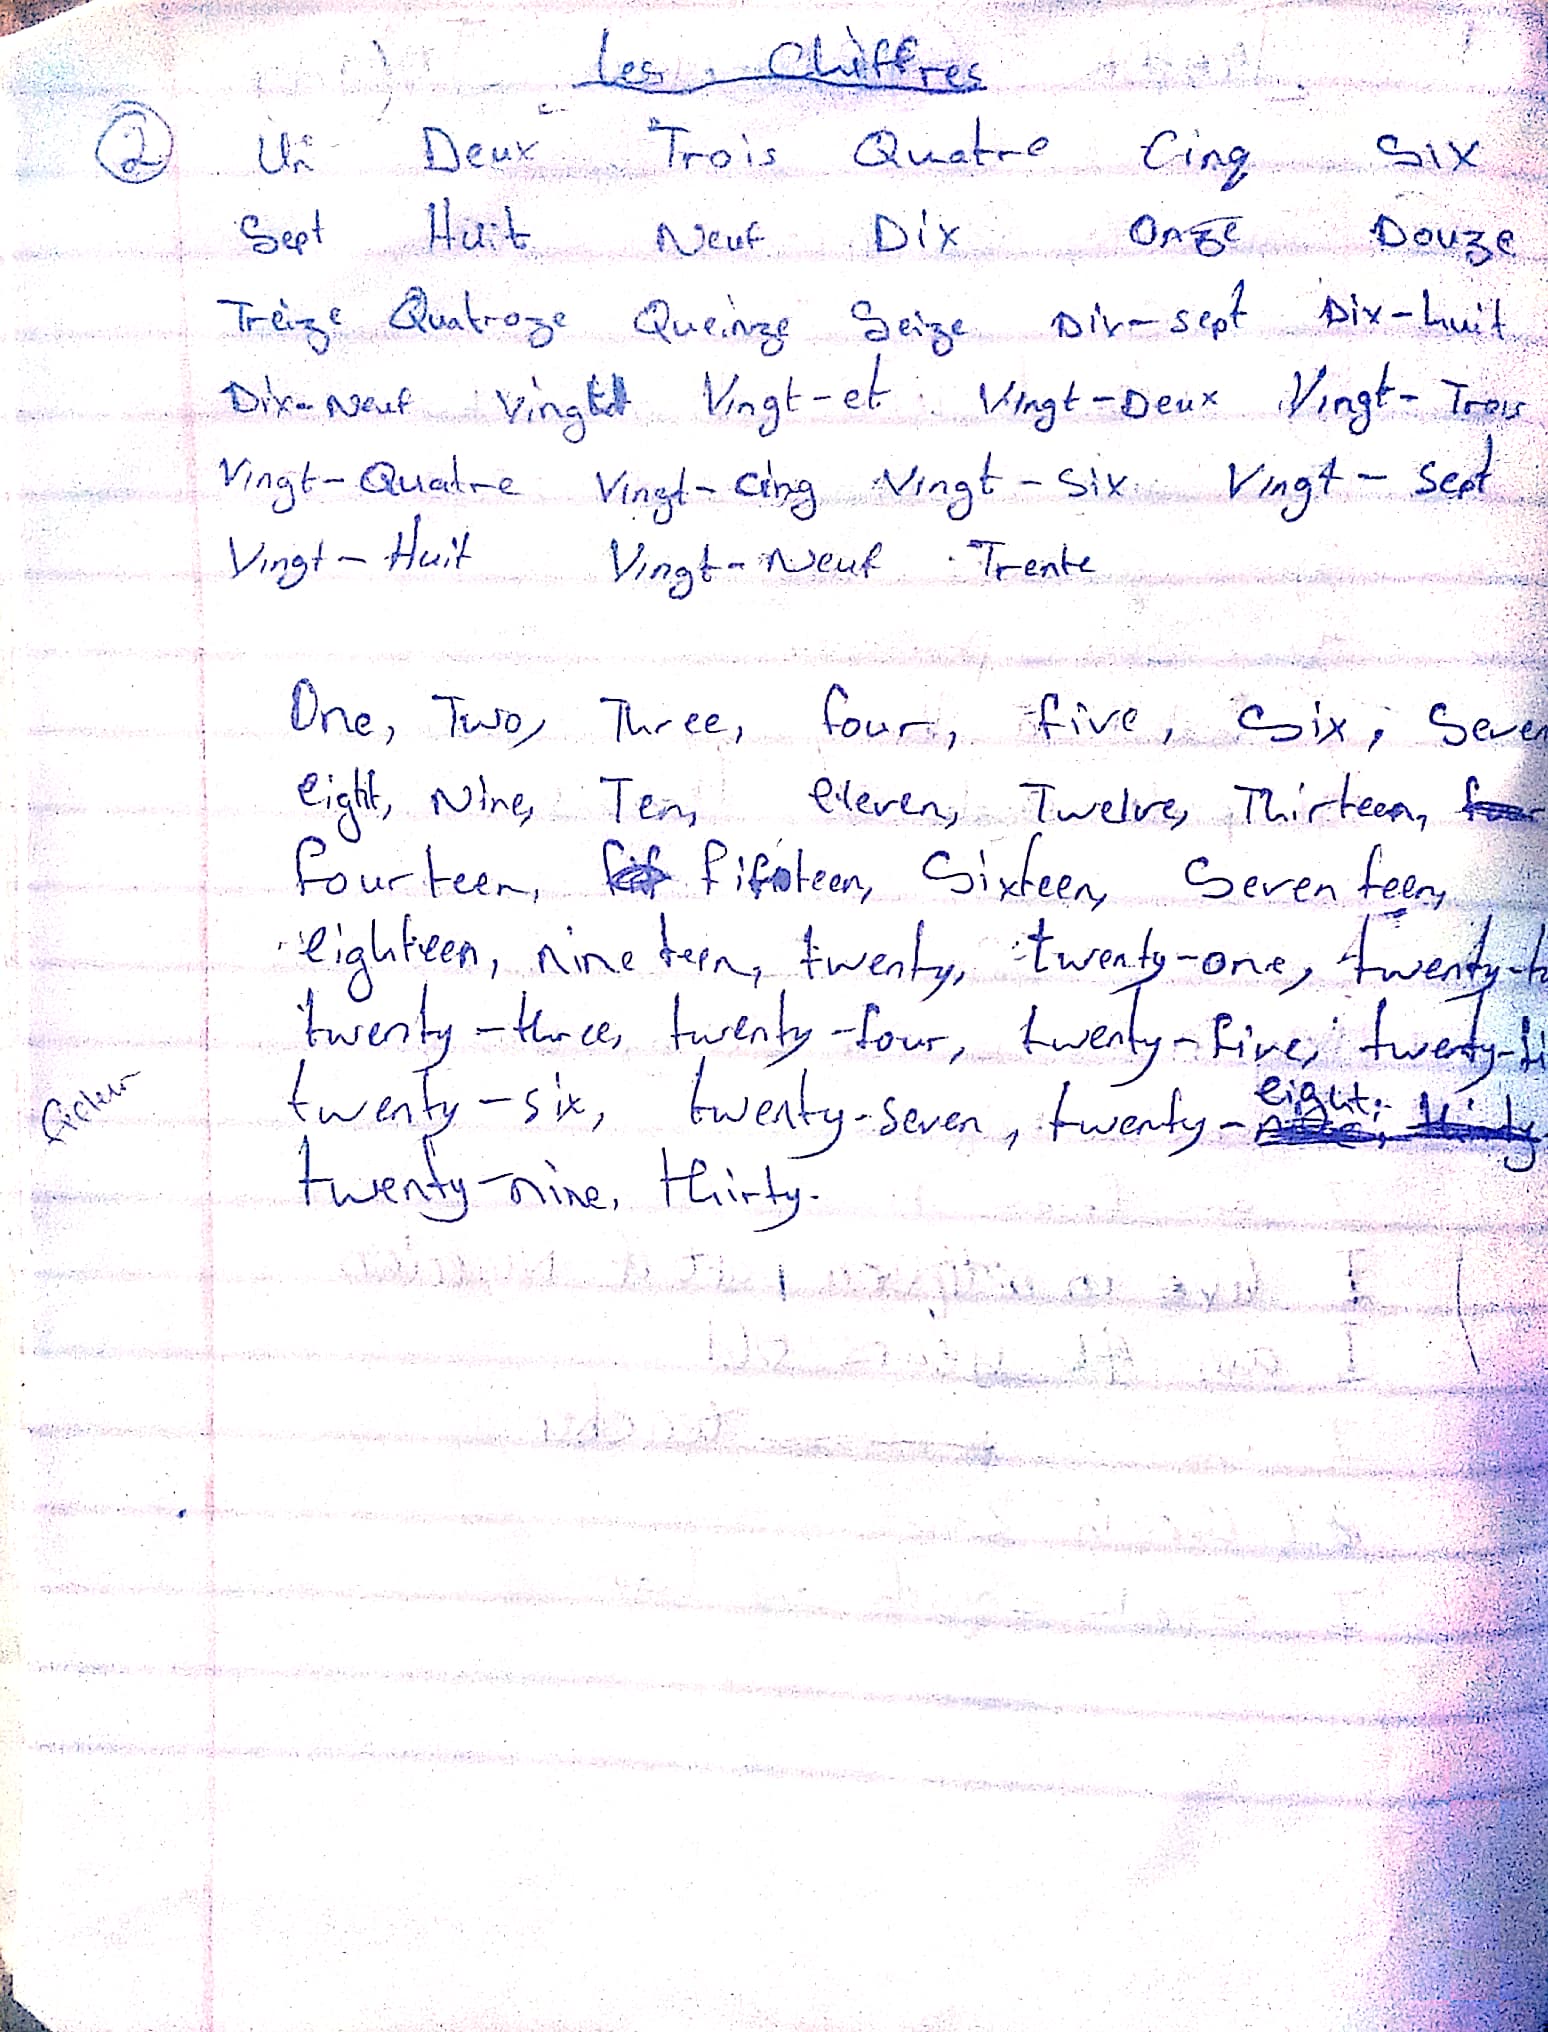 Les Chiffres
② Un Deux Trois Quatre Cinq Six
Sept Huit Neuf Dix Onze Douze
Treize Quatroze Queinze Seize Dix-sept Dix-huit
Dix-Neuf Vingt Vingt-et Vingt-Deux Vingt-Trois
Vingt-Quatre Vingt-cinq Vingt-Six Vingt-Sept
Vingt-Huit Vingt-Neuf Trente
One, Two, Three, four, five, Six, Seven
eight, Nine, Ten, eleven, Twelve, Thirteen,
fourteen, fifteen, Sixteen, Seventeen,
eighteen, nineteen, twenty, twenty-one, twenty-t
twenty-three, twenty-four, twenty-five, twenty-fi
twenty-six, twenty-seven, twenty-eight,
twenty-nine, thirty.